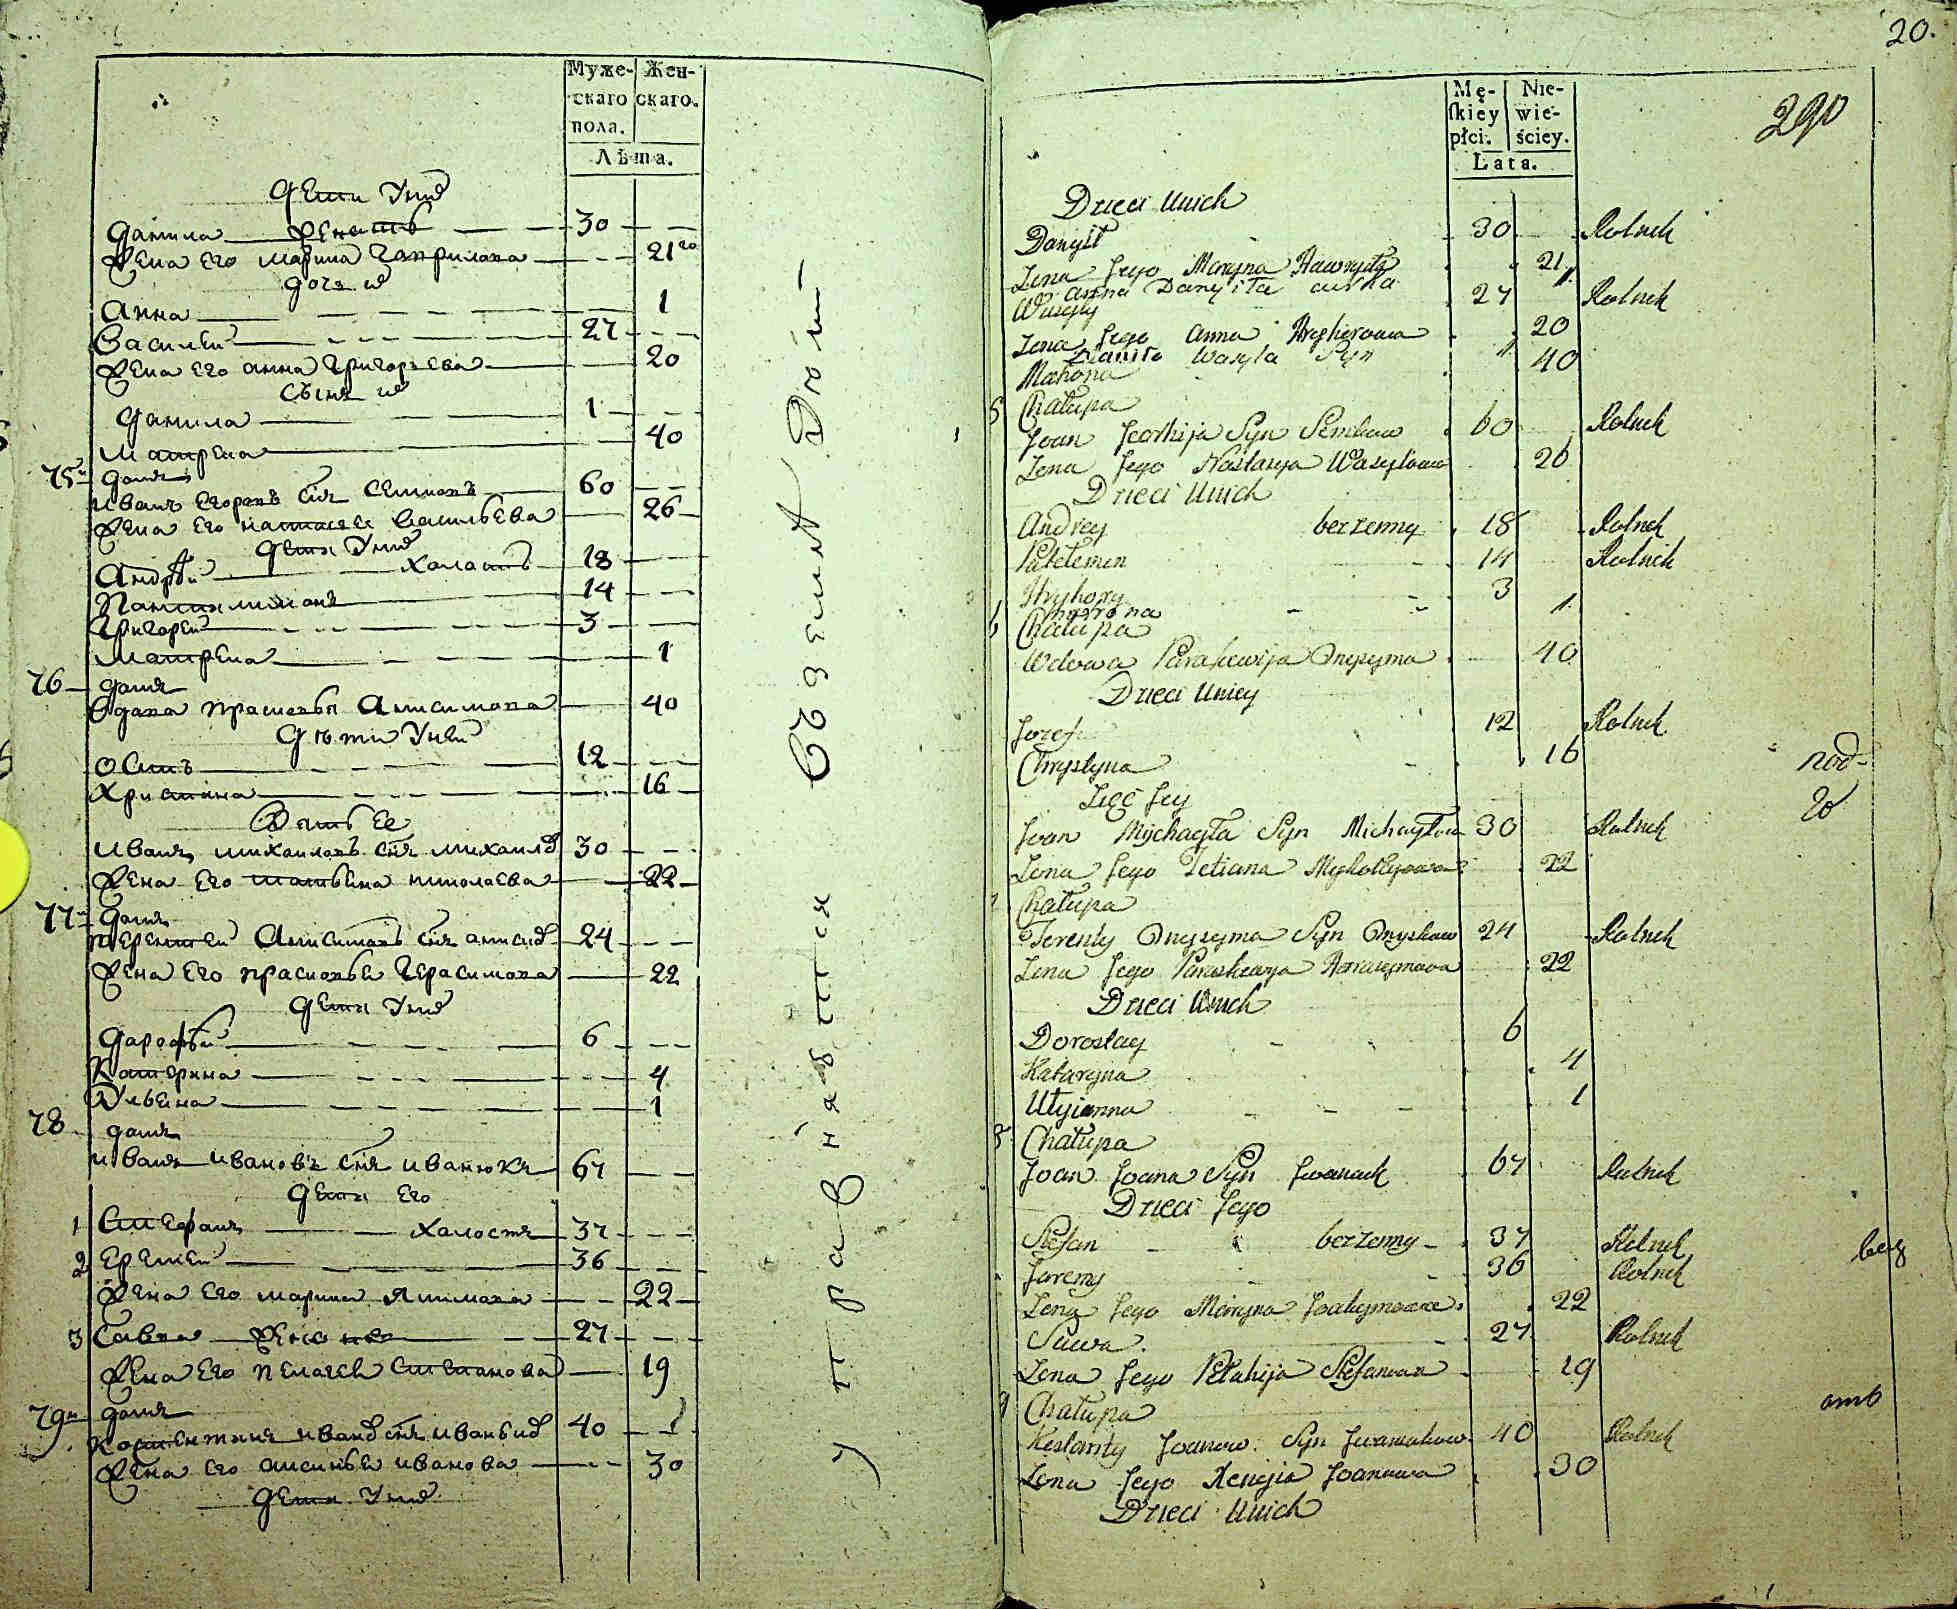 Муже-
скаго
пола.
Жен-
скаго.
Лѣта.
Дети Унихъ
Данила — Женатъ — 30
Жена его Марина Гаврилова — 21
Дочь ихъ
Анна — 1
Василей — 27
Жена его Анна Григорьева — 20
Сынъ ихъ
Данила — 1
Матрена — 40
75 Домъ
Иванъ Егоровъ снъ Семиовъ — 60
Жена его Настасея Васильева — 26
Дети Унихъ
Андрѣй — Холостъ — 18
Пантилимонъ — 14
Григорей — 3
Матрена — 1
76 Домъ
Вдова Прасковья Анисимова — 40
Дѣти Унеи
Осипъ — 12
Христина — 16
Зять Ее
Иванъ Михайловъ снъ Михайлов — 30
Жена Его Татьяна Николаева — 22
77 Домъ
Терентей Анисимовъ снъ — 24
Жена Его Прасковья Герасимова — 22
Дети Унихъ
Дарофѣй — 6
Катерина — 4
Ульяна — 1
78 Домъ
Иванъ Ивановъ снъ Иванюкъ — 67
Дети Его
1 Стефанъ — Холостъ — 37
2 Еремей — 36
Жена Его Марина Якимова — 22
3 Савва — Женатъ — 27
Жена Его Пелагея Степанова — 19
79 Домъ
40
Жена Его Аксинья Иванова — 30
Дети Унихъ
управняется Съземлю
20.
290
Mę-
skiey
płci.
Nie-
wie-
ściey.
Lata.
Dzieci Unich
Danyłł 30 Rolnik
Żena Jego Maryna Hawryła 21
Anna Danyiła curka 1
Wasyly 27 Rolnik
Żena Jego Anna Hryhorowa 20
Daniło Wasyla Syn 1
Matrona 40
5 Chałupa
Joan Jeorhija Syn Semkow 60 Rolnik
Żena Jego Nastasya Wasylowa 26
Dzieci Unich
Andrey bezżenny 18 Rolnik
Patełemon 14 Rolnik
Hryhory 3
Matrona 1
6 Chałupa
Wdowa Paraskewija Onysyma 40
Dzieci Uniey
Jozef 12 Rolnik
Chrystyna 16
Zięć Jey
Joan Mychayła Syn Michayłow 30 Rolnik
Żena Jego Tetiana Mykołajowa 22
7 Chałupa
Terenty Onysyma Syn Onyskow 24 Rolnik
Żena Jego Paraskewya Harasymowa 22
Dzieci Unich
Dorofiey 6
Kataryna 4
Ulyianna 1
8 Chałupa
Joan Joana Syn Iwaniuk 67 Rolnik
Dzieci Jego
Stefan bezżenny 37 Rolnik
Jeremy 36 Rolnik
Żena Jego Maryna Joakymowa 22
Sawa 27 Rolnik
Żena Jego Pełahija Stefanowa 19
9 Chałupa
Kostanty Joanow Syn Iwaniukow 40 Rolnik
Żena Jego Xenyia Joanowa 30
Dzieci Unich